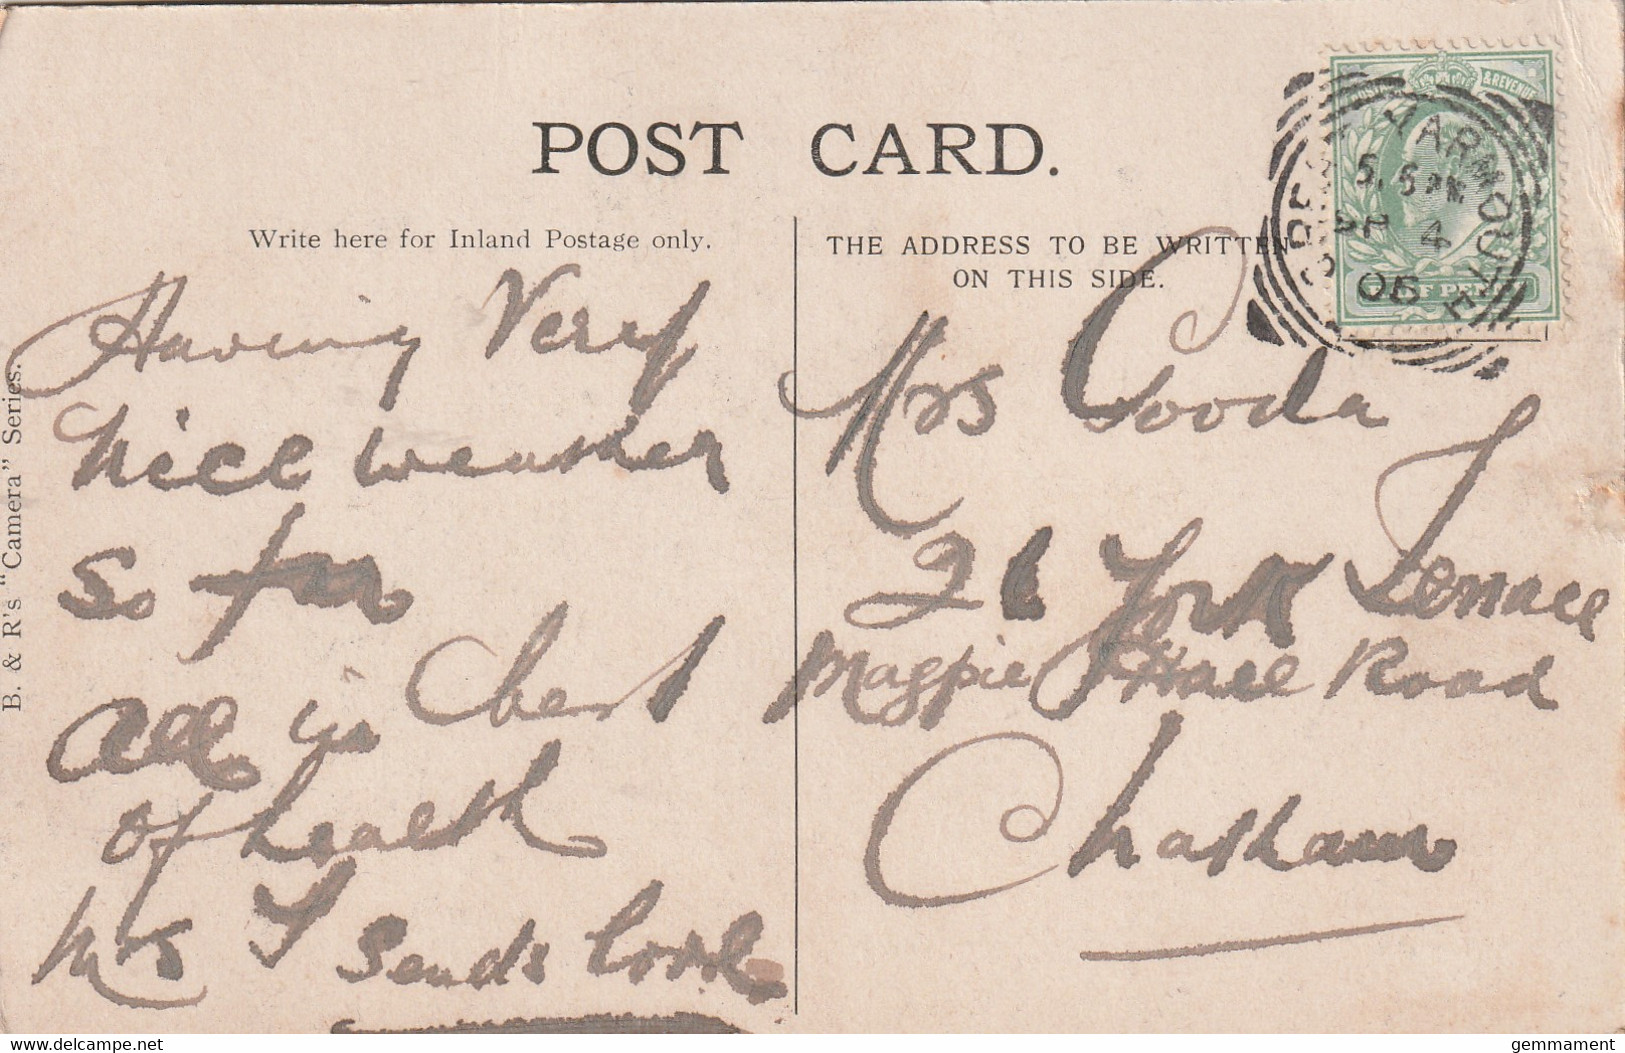 POST CARD.
Write here for Inland Postage only.
THE ADDRESS TO BE WRITTEN
ON THIS SIDE.
B. & R's "Camera" Series.
& REVENUE
YARMOUTH
5.5 PM
SP 4
05
Having Very
nice weather
so far
All in best
of health
Mrs J sends love
Mrs Gooda
21 York Terrace
Magpie Hall Road
Chatham
www.delcampe.net
gemmament